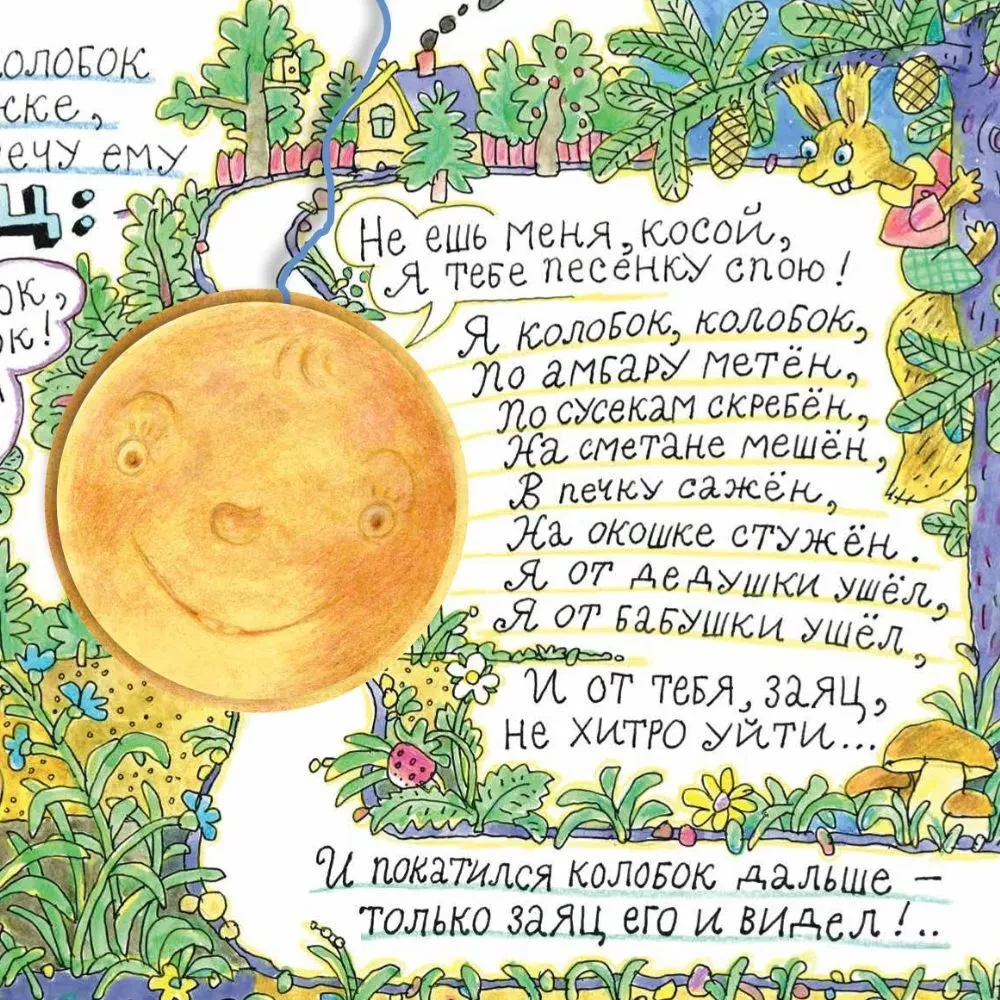 колобок
ему
Не ешь меня, косой,
Я тебе песенку спою!
Я колобок, колобок,
По амбару метён,
По сусекам скребён,
На сметане мешён,
В печку сажён,
На окошке стужён.
Я от дедушки ушёл,
Я от бабушки ушёл,
И от тебя, заяц,
не хитро уйти...
И покатился колобок дальше –
только заяц его и видел!..